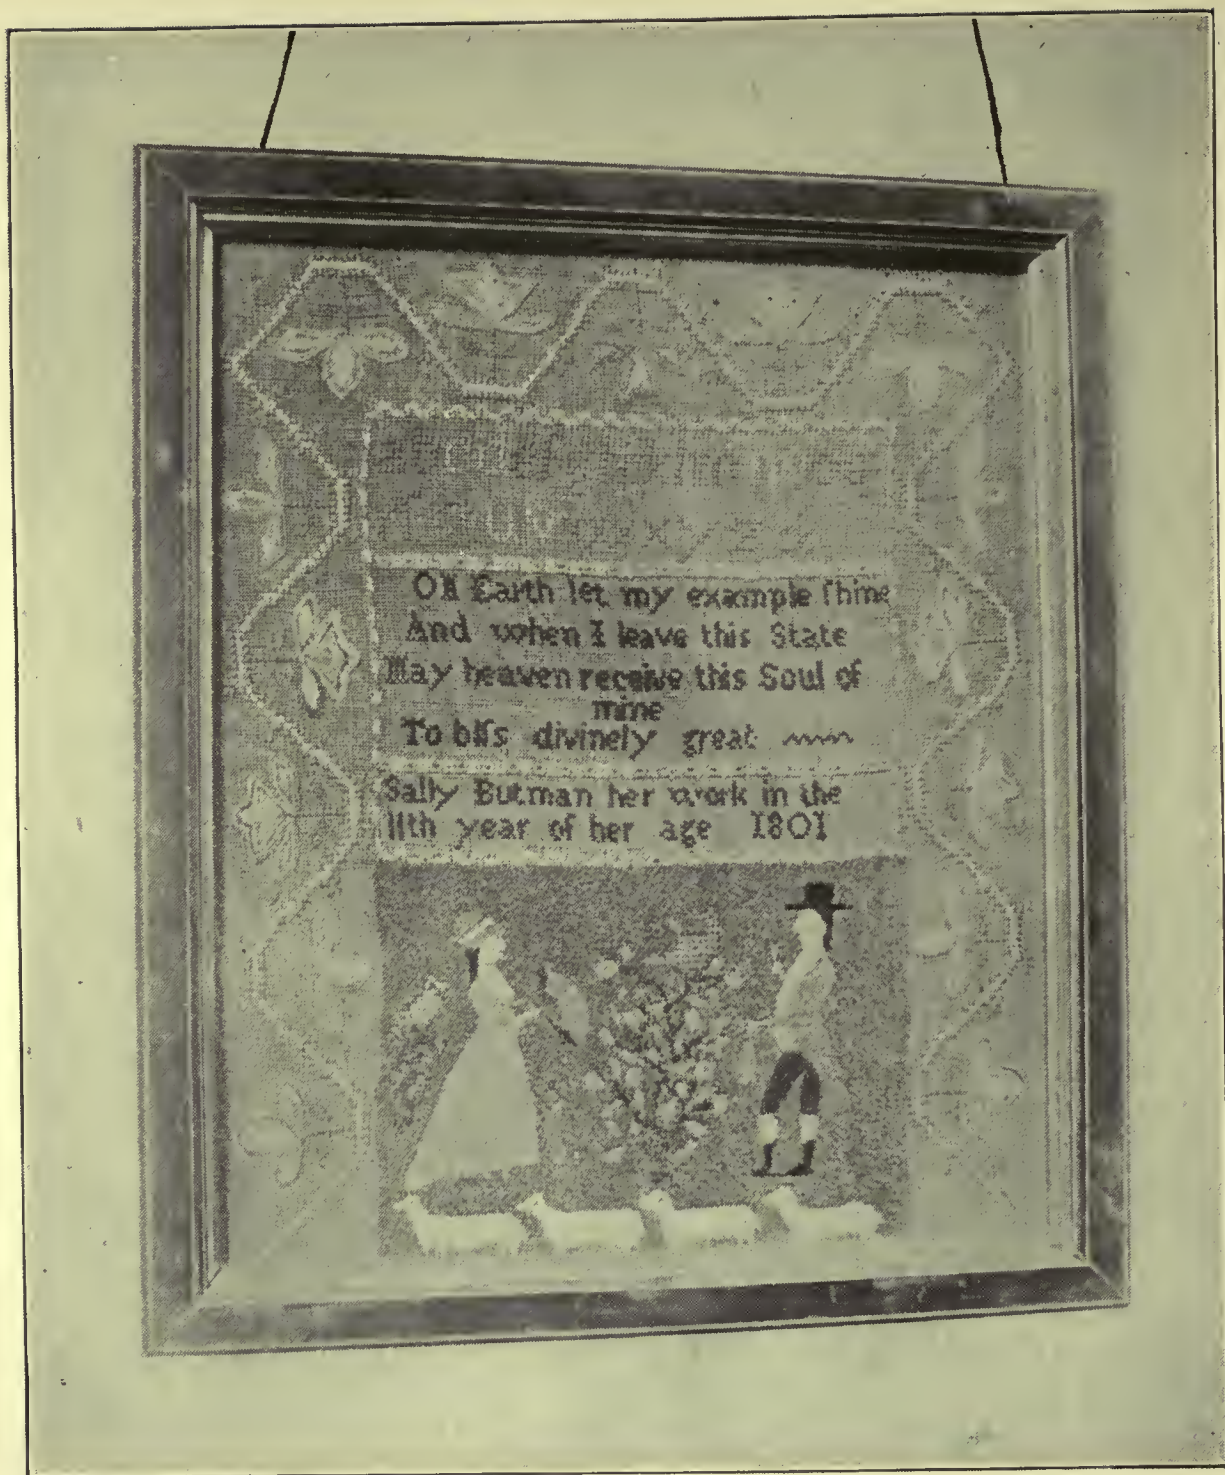 On Earth let my example ſhine
And when I leave this State
May heaven receive this Soul of
mine
To bliſs divinely great
Sally Butman her work in the
11th year of her age 1801